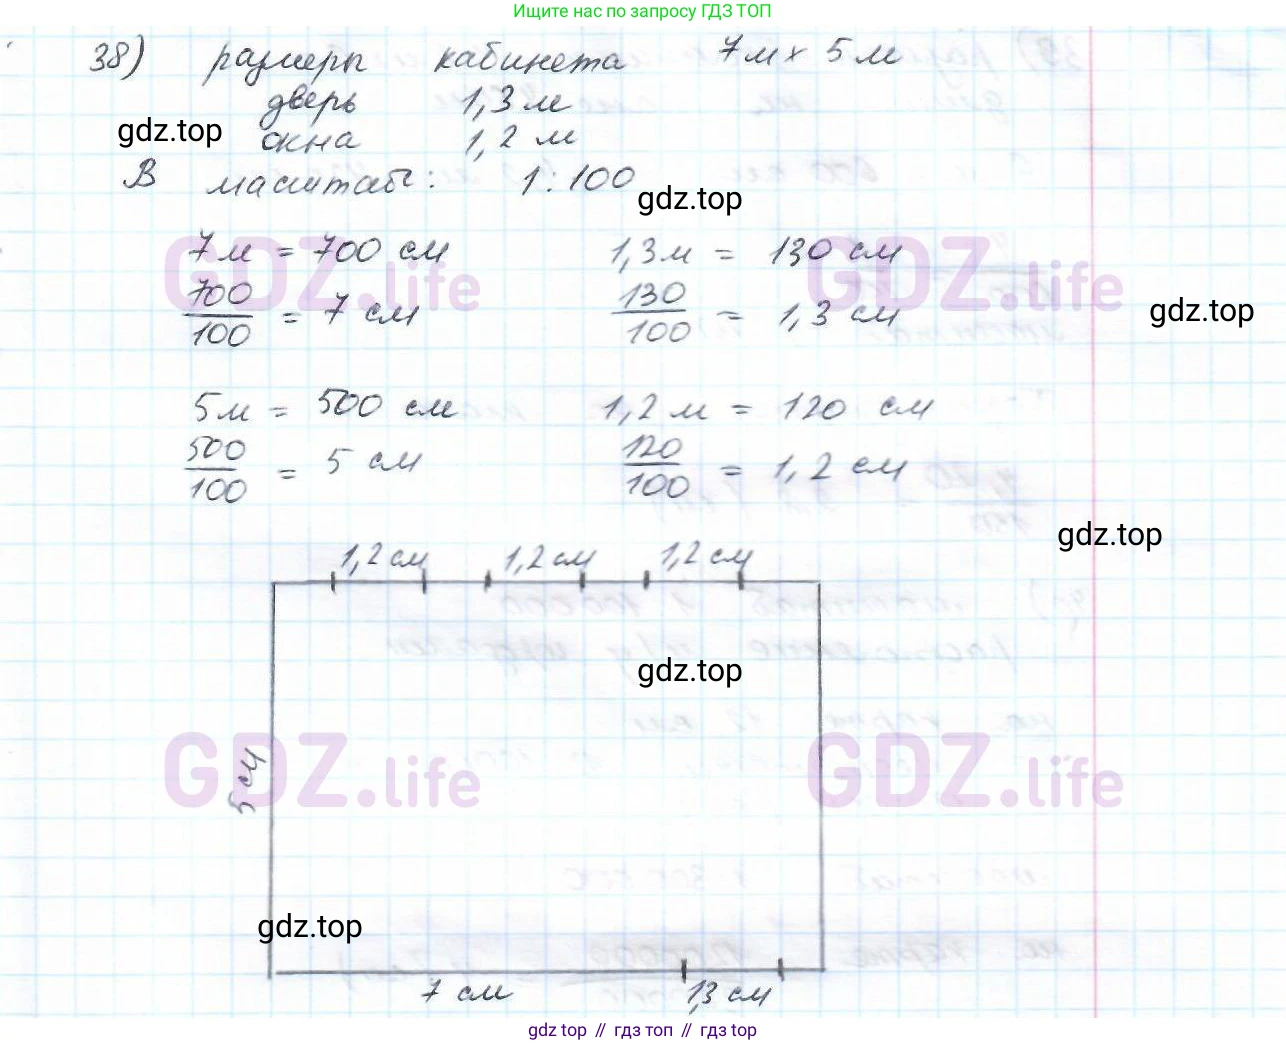 Ищите нас по запросу ГДЗ ТОП
38) размеры кабинета 7м x 5м
дверь 1,3 м
gdz.top
окна 1,2 м
В масштабе: 1:100
gdz.top
7м = 700 см 1,3м = 130 см
GDZ.life GDZ.life
700/100 = 7 см 130/100 = 1,3 см
gdz.top
5м = 500 см 1,2 м = 120 см
500/100 = 5 см 120/100 = 1,2 см
gdz.top
1,2 см 1,2 см 1,2 см
gdz.top
5 см
GDZ.life GDZ.life
gdz.top
7 см 1,3 см
gdz top // гдз топ // gdz top